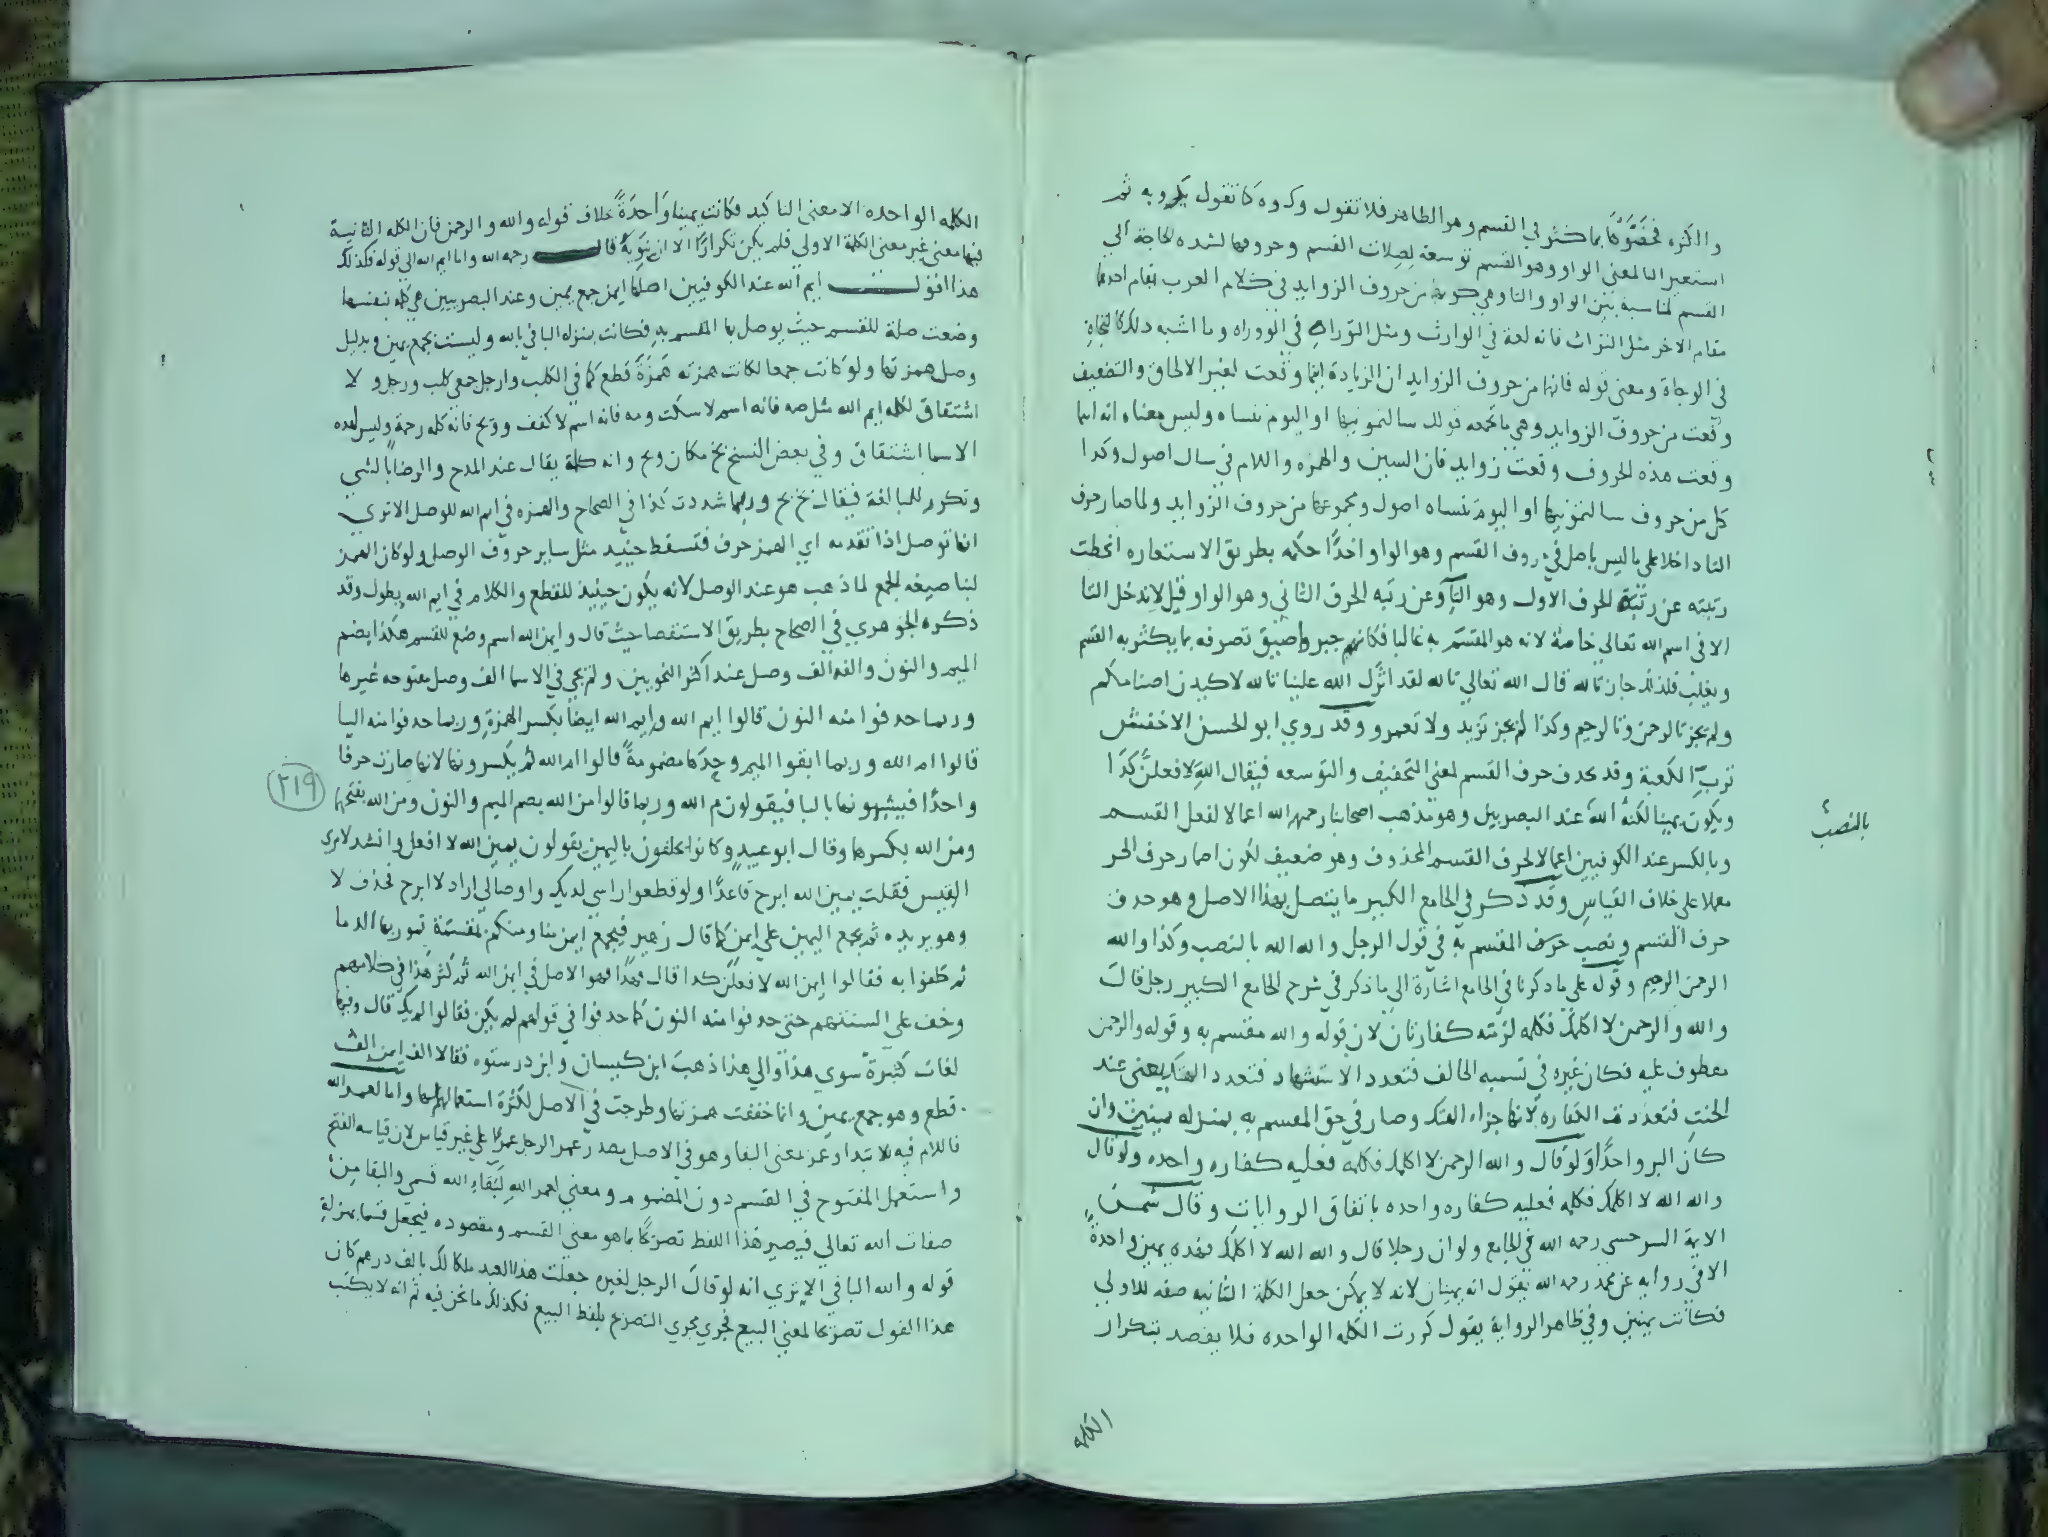 والكثره فخصوها بما كثر في القسم وهو الظاهر فلا تقول وكـ وه كما تقول بكـ وبه ثم
استعير التا لمعنى الواو وهو القسم توسعة لصلات القسم وحروفها لشدة الحاجة الي
القسم لمناسبة بين الواو والتا وهي من حروف الزوايد في كلام العرب تقام احدهما
مقام الاخر مثل التراث فانه لغة في الوارث ومثل التوراة في الووراه وما اشبه ذلك كالتجاه
في الوجاه ومعنى قوله فانها من حروف الزوايد ان الزيادة اينما وقعت لغير الالحاق والتضعيف
وقعت من حروف الزوايد وهي ما يجمعه قولك سالتمونيها او اليوم تنساه وليس معناه انه اينما
وقعت هذه الحروف وقعت زوايد فان السين والهمزه واللام في سال اصول وكذا
كل من حروف سالتمونيها او اليوم تنساه اصول ومجموعها من حروف الزوايد ولما صار حرف
التا داخلا على ما ليس باصل في حروف القسم وهو الواو اخذا حكمه بطريق الاستعاره انحطت
رتبته عن رتبة الحرف الاول وهو البآ وعن رتبه الحرف الثاني وهو الواو فقيل لا تدخل التا
الا في اسم الله تعالي خاصة لانه هو المقسم به غالبا فكانهم جبروا ضيق تصرفه بما يكثر به القسم
ويغلب فلذلك جاز تالله قال الله تعالي تالله لقد اثرك الله علينا تالله لاكيدن اصنامكم
ولم يجز تالرحمن وتالرحيم وكذا لم يجز تزيد ولا تعمرو وقد روي ابو الحسن الاخفش
ترب الكعبة وقد يحذف حرف القسم لمعنى التخفيف والتوسعه فيقال الله لافعلن كذا
ويكون يمينا لكنه الله عند البصريين وهو مذهب اصحابنا رحمهم الله اعمالا لفعل القسم
بالنصب
وبالكسر عند الكوفيين اعمالا لحرف القسم المحذوف وهو ضعيف لكون اضمار حرف الجر
معملا على خلاف القياس وقد ذكر في الجامع الكبير ما يتصل بهذا الاصل وهو حذف
حرف القسم ونصب حرف المقسم به في قول الرجل والله الله بالنصب وكذا والله
الرحمن الرحيم وقوله على ما ذكرنا في الجامع اشارة الي ما ذكر في شرح الجامع الكبير رجل قال
والله والرحمن لا اكلمك فكلمه لزمته كفارتان لان قوله والله مقسم به وقوله والرحمن
معطوف عليه فكان غيره في تسميه الحالف فتعدد الاستشهاد فتعدد الهتك يعني عند
الحنث فتعددت الكفاره لانها جزاء الهتك وصار في حق المقسم به بمنزله يمينين وان
كان البر واحدا ولو قال والله الرحمن لا اكلمك فكلمه فعليه كفاره واحده ولو قال
والله الله لا اكلمك فكلمه فعليه كفاره واحده باتفاق الروايات وقال شمس
الايمة السرخسي رحمه الله في الجامع ولو ان رجلا قال والله الله لا اكلمك فهذه يمين واحدة
الا في روايه عن محمد رحمه الله يقول انه يمينان لانه لا يمكن جعل الكلمة الثانيه صفه للاولي
فكانت يمينين وفي ظاهر الرواية يقول كررت الكلمه الواحده فلا يقصد بتكرار
الكلمه
الكلمه الواحده الا معنى التاكيد فكانت يمينا واحدة بخلاف قوله والله والرحمن فان الكلمه الثانية
فيها معنى غير معنى الكلمة الاولي فلم يكن تكرارا الا ان ينويه قال رحمه الله واما ايم الله الي قوله فكذلك
هذا اقول ايم الله عند الكوفيين اصلها ايمن جمع يمين وعند البصريين هي كلمه بنفسها
وضعت صلة للقسم حيث يوصل بها المقسم به فكانت بمنزله البا في بالله وليست بجمع يمين وبدليل
وصل همزتها ولو كانت جمعا لكانت همزته همزة قطع كما في اكلب وارجل جمعي كلب ورجل ولا
اشتقاق لكلمه ايم الله مثل صه فانه اسم لاسكت ومه فانه اسم لاكفف وويح فانه كلمه رحمة وليس لهذه
الاسما اشتقاق وفي بعض النسخ بخ مكان ويح وانه كلمة يقال عند المدح والرضا بالشي
وتكرر للمبالغة فيقال بخ بخ وربما شددت كذا في الصحاح والهمزه في ايم الله للوصل الا تري
انها توصل اذا تقدمه اي الهمز حرف فتسقط حينيد مثل ساير حروف الوصل ولو كان الهمز
لبنا صيغه الجمع لما ذهب هو عند الوصل لانه يكون حينيذ للقطع والكلام في ايم الله يطول وقد
ذكره الجوهري في الصحاح بطريق الاستقصا حيث قال وايمن الله اسم وضع للقسم هكذا بضم
الميم والنون والفه الف وصل عند اكثر النحويين ولم يجي في الاسما الف وصل مفتوحه غيرها
وربما حذفوا منه النون قالوا ايم الله وايم الله ايضا بكسر الهمزة وربما حذفوا منه اليا
قالوا ام الله وربما ابقوا الميم وحدها مضمومة قالوا م الله ثم يكسرونها لانها صارت حرفا
٢١٩
واحدا فيشبهونها بالبا فيقولون م الله وربما قالوا من الله بضم الميم والنون ومن الله بفتحها
ومن الله بكسرها وقال ابو عبيد وكانوا يحلفون باليمين يقولون يمين الله لا افعل وانشد لامري
القيس فقلت يمين الله ابرح قاعدا ولو قطعوا راسي لديك واوصالي اراد لا ابرح فحذف لا
وهو يريده ثم يجمع اليمين علي ايمن كما قال زهير فتجمع ايمن منا ومنكم بمقسمة تمور بها الدما
ثم حلفوا به فقالوا ايمن الله لافعلن كذا قال فهذا هو الاصل في ايمن الله ثم كثر هذا في كلامهم
وخف على السنتهم حتى حذفوا منه النون كما حذفوا في قولهم لم يكن فقالوا لم يك قال وفيها
لغات كثيرة سوي هذا والي هذا ذهب ابن كيسان وابن درستوه فقالا الف ايمن الف
قطع وهو جمع يمين وانما خففت همزتها وطرحت في الاصل لكثرة استعمالهم لها واما لعمر الله
فاللام فيه للابتدا وعمر معنى البقا وهو في الاصل مصدر عمر الرجل عمرا علي غير قياس لان قياسه الفتح
واستعمل المفتوح في القسم دون المضموم ومعني لعمر الله لبقاء الله قسمي والبقا من
صفات الله تعالي فيصير هذا اللفظ تصريحا بما هو معني القسم ومقصوده فيجعل قسما بمنزلة
قوله والله الباقي الا يري انه لو قال الرجل لغيره جعلت هذا العبد ملكا لك بالف درهم كان
هذا القول تصريحا لمعنى البيع فجري مجري التصريح بلفظ البيع فكذلك ما نحن فيه ثم انه لا يكتب